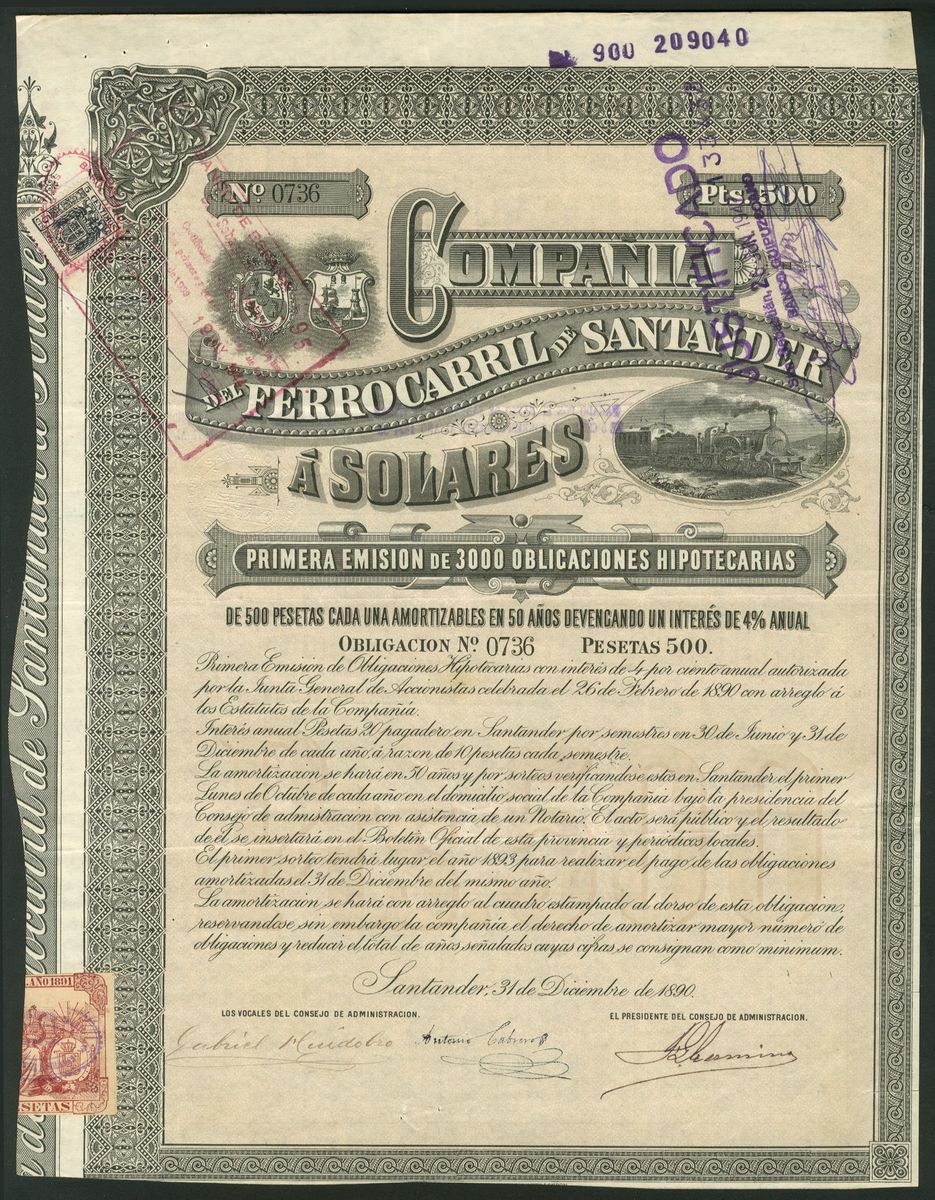 900 209040
Nº 0736
Pts. 500
JUSTIFICADO
COMPAÑIA
DEL FERROCARRIL DE SANTANDER
Á SOLARES
PRIMERA EMISION DE 3000 OBLIGACIONES HIPOTECARIAS
DE 500 PESETAS CADA UNA AMORTIZABLES EN 50 AÑOS DEVENGANDO UN INTERÉS DE 4% ANUAL
OBLIGACION Nº 0736 PESETAS 500.
Primera Emisión de Obligaciones Hipotecarias con interés de 4 por ciento anual autorizada
por la Junta General de Accionistas celebrada el 26 de Febrero de 1890 con arreglo á
los Estatutos de la Compañía.
Interés anual Pesetas 20 pagadero en Santander por semestres en 30 de Junio y 31 de
Diciembre de cada año, á razon de 10 pesetas cada semestre.
La amortizacion se hará en 50 años y por sorteos verificandose estos en Santander el primer
Lunes de Octubre de cada año en el domicilio social de la Compañia bajo la presidencia del
Consejo de admistracion con asistencia de un Notario. El acto será público y el resultado
de el se insertará en el Boletin Oficial de esta provincia y periódicos locales.
El primer sorteo tendrá lugar el año 1893 para realizar el pago de las obligaciones
amortizadas el 31 de Diciembre del mismo año.
La amortizacion se hará con arreglo al cuadro estampado al dorso de esta obligacion,
reservandose sin embargo la compañia el derecho de amortizar mayor numero de
obligaciones y reducir el total de años señalados cuyas cifras se consignan como minimum.
Santander, 31 de Diciembre de 1890.
LOS VOCALES DEL CONSEJO DE ADMINISTRACION.
EL PRESIDENTE DEL CONSEJO DE ADMINISTRACION.
Gabriel Huidobro Antonio Cabrero
AÑO 1891
PESETAS